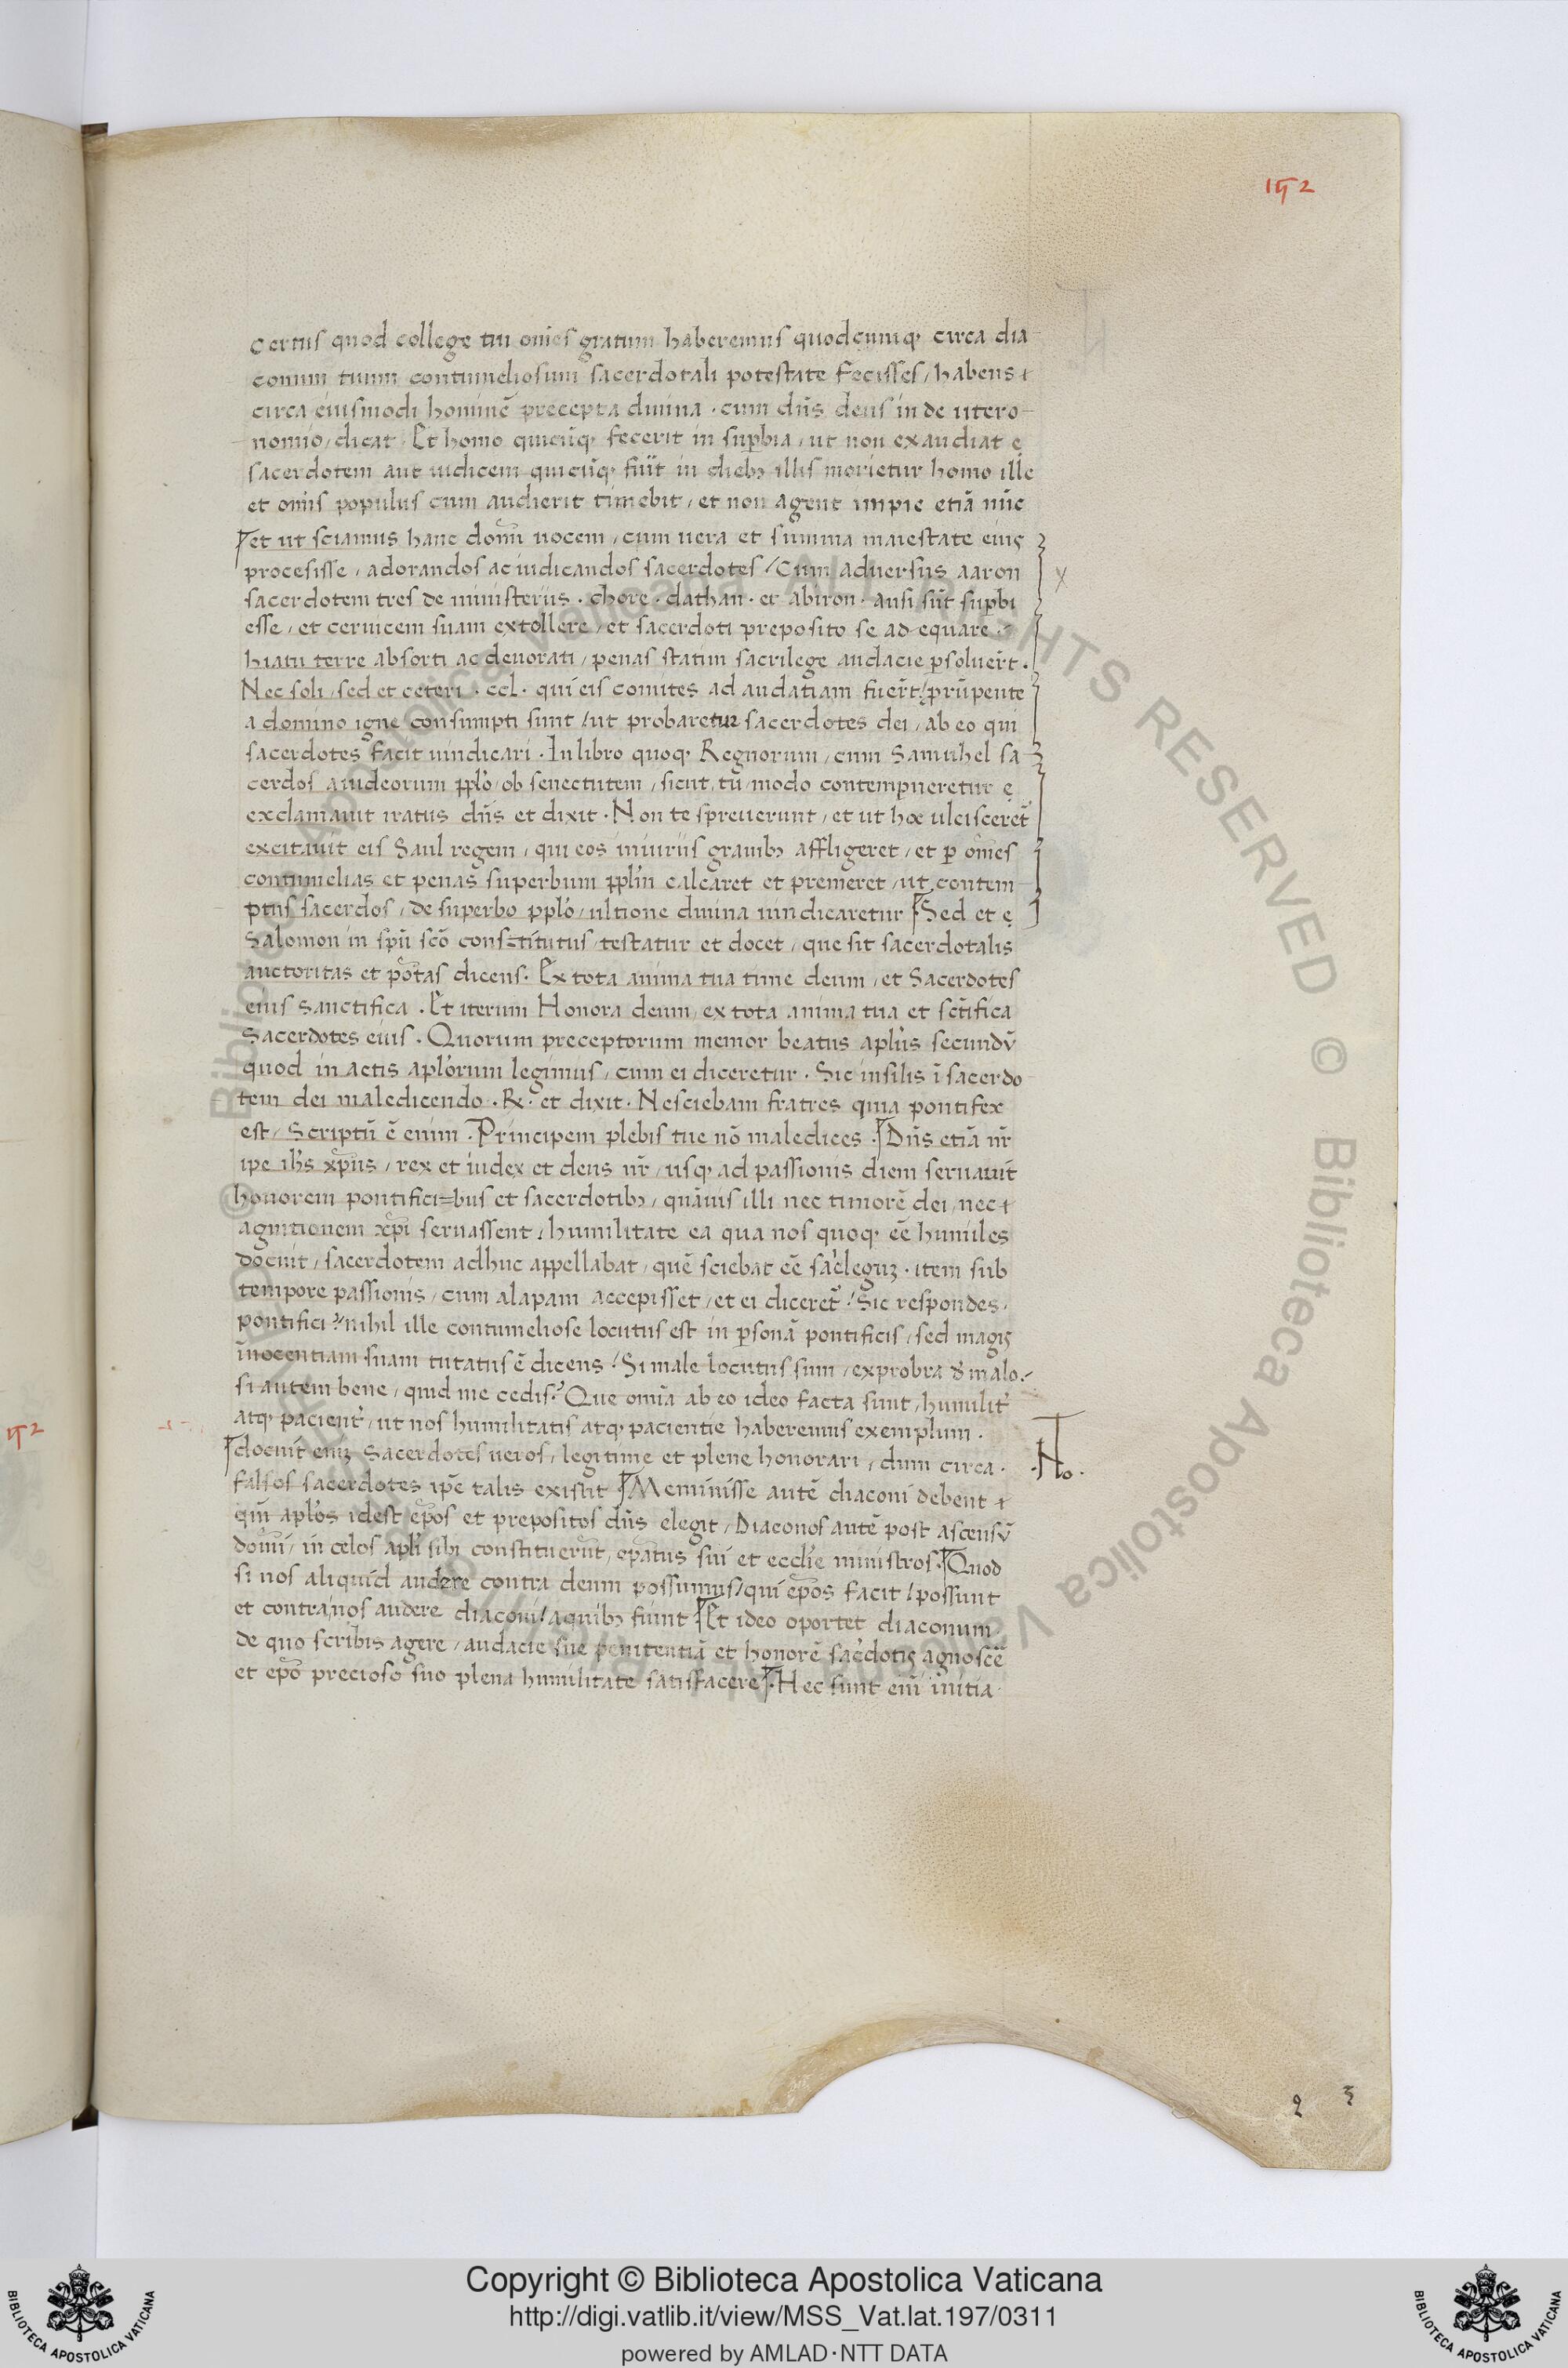 152
certus quod college tui om̄es gratum haberemus quodcumq; circa dia
conum tuum contumeliosum sacerdotali potestate fecisses / habens
circa eiusmodi hominē precepta diuina · cum dn̄s deus in de utero
nomio / dicat · Et homo quicūq; fecerit in sup̱bia / ut non exaudiat
sacerdotem aut iudicem quicūq; fūit in dieb; illis morietur homo ille
et om̄is populus cum audierit timebit / et non agent impie etiā nūc
et ut sciamus hanc domī uocem / cum uera et summa maiestate eiuꝯ
procesisse / adorandos ac iudicandos sacerdotes / Cum aduersus aaron
sacerdotem tres de ministeriis · chore · dathan · et abiron · ausi sūt sup̱bi
esse / et ceruicem suam extollere / et sacerdoti preposito se ad equare
hiatu terre absorti ac deuorati / penas statim sacrilege audacie p̱soluer̄t ·
Nec soli / sed et ceteri · ccl · qui eis comites ad audatiam fuer̄t / prūpente
a domino igne consumpti sunt / ut probaretur sacerdotes dei / ab eo qui
sacerdotes facit uindicari · In libro quoq; Regnorum / cum Samuhel sa
cerdos a iudeorum pp̄lo / ob senectutem / sicut tū / modo contempneretur
exclamauit iratus dn̄s et dixit · Non te spreuerunt / et ut hoc ulcisceret᷑
excitauit eis Saul regem / qui eos iniuriis grauib; affligeret / et p̱ om̄es
contumelias et penas superbum pp̄lm calcaret et premeret / ut contem
ptus sacerdos / de superbo pp̄lo / ultione diuina uindicaretur Sed et
Salomon in spū scō constitutus / testatur et docet / que sit sacerdotalis
auctoritas et potās dicens · Ex tota anima tua time deum / et Sacerdotes
eius sanctifica · Et iterum Honora deum / ex tota anima tua et sc̄tifica
Sacerdotes eius · Quorum preceptorum memor beatus apl̄us secundū
quod in actis apl̄orum legimus / cum ei diceretur · Sic insilis ī sacerdo
tem dei maledicendo · R · et dixit · Nesciebam fratres quia pontifex
est / Scriptū ē enim · Principem plebis tue nō maledices · Dn̄s etiā nr̄
ipe ih̄s xp̄us / rex et iudex et deus nr̄ / usq; ad passionis diem seruauit
honorem pontifici=bus et sacerdotib; / quāuis illi nec timorē dei / nec
agnitionem xp̄i seruassent / humilitate ea qua nos quoq; eē humiles
docuit / sacerdotem adhuc appellabat / quē sciebat eē sac̓leguȝ · item sub
tempore passionis / cum alapam accepisset / et ei diceret᷑ / Sic respondes ·
pontifici ? nihil ille contumeliose locutus est in p̱sonā pontificis / sed magiꝯ
īnocentiam suam tutatus ē dicens / Si male locutus sum / exprobra d̓ malo /
si autem bene / quid me cedis ? Que omīa ab eo ideo facta sunt / humilit᷑
atq; pacient᷑ / ut nos humilitatis atq; pacientie haberemus exemplum ·
docuit eniȝ Sacerdotes ueros / legitime et plene honorari / dum circa ·
No.
falsos sacerdotes ipē talis existit Meminisse autē diaconi debent
qm̄ apl̄os idest ep̄os et prepositos dn̄s elegit / Diaconos autē post ascensū
domī / in celos apl̄i sibi constituerūt / ep̄atus sui et eccl̄ie ministros · Quod
si nos aliquid audere contra deum possumus / qui ep̄os facit / possunt
et contra nos audere diaconi / a quib; fiunt Et ideo oportet diaconum
de quo scribis agere / audacie sue penitentiā et honorē sac̓dotiꝯ agnoscē
et ep̄o precioso suo plena humilitate satisfacere · Hec sunt enī initia
2 3
152
Copyright © Biblioteca Apostolica Vaticana
http://digi.vatlib.it/view/MSS_Vat.lat.197/0311
powered by AMLAD·NTT DATA